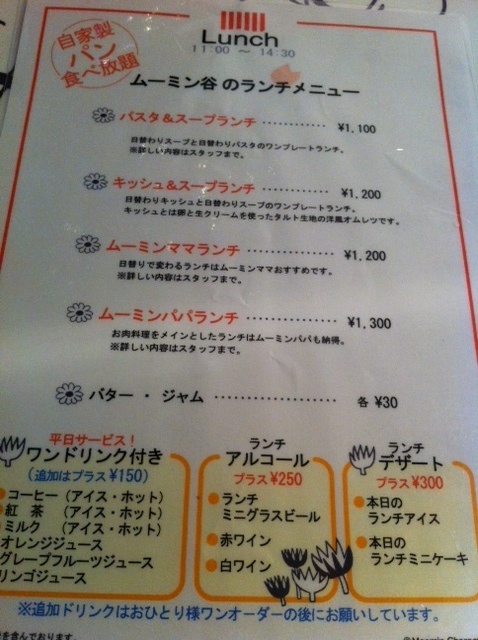 自家製
パン
食べ放題
Lunch
11:00 〜 14:30
ムーミン谷 のランチメニュー
パスタ&スープランチ ………… ¥1,100
日替わりスープと日替わりパスタのワンプレートランチ。
※詳しい内容はスタッフまで。
キッシュ&スープランチ ………… ¥1,200
日替わりキッシュと日替わりスープのワンプレートランチ。
キッシュとは卵と生クリームを使ったタルト生地の洋風オムレツです。
ムーミンママランチ ………… ¥1,200
日替りで変わるランチはムーミンママおすすめです。
※詳しい内容はスタッフまで。
ムーミンパパランチ ………… ¥1,300
お肉料理をメインとしたランチはムーミンパパも納得。
※詳しい内容はスタッフまで。
バター ・ ジャム ………… 各 ¥30
平日サービス!
ワンドリンク付き
(追加はプラス ¥150)
コーヒー (アイス・ホット)
紅 茶 (アイス・ホット)
ミルク (アイス・ホット)
オレンジジュース
グレープフルーツジュース
リンゴジュース
ランチ
アルコール
プラス ¥250
ランチ
ミニグラスビール
赤ワイン
白ワイン
ランチ
デザート
プラス ¥300
本日の
ランチアイス
本日の
ランチミニケーキ
※追加ドリンクはおひとり様ワンオーダーの後にお願いしています。
を含んでおります。